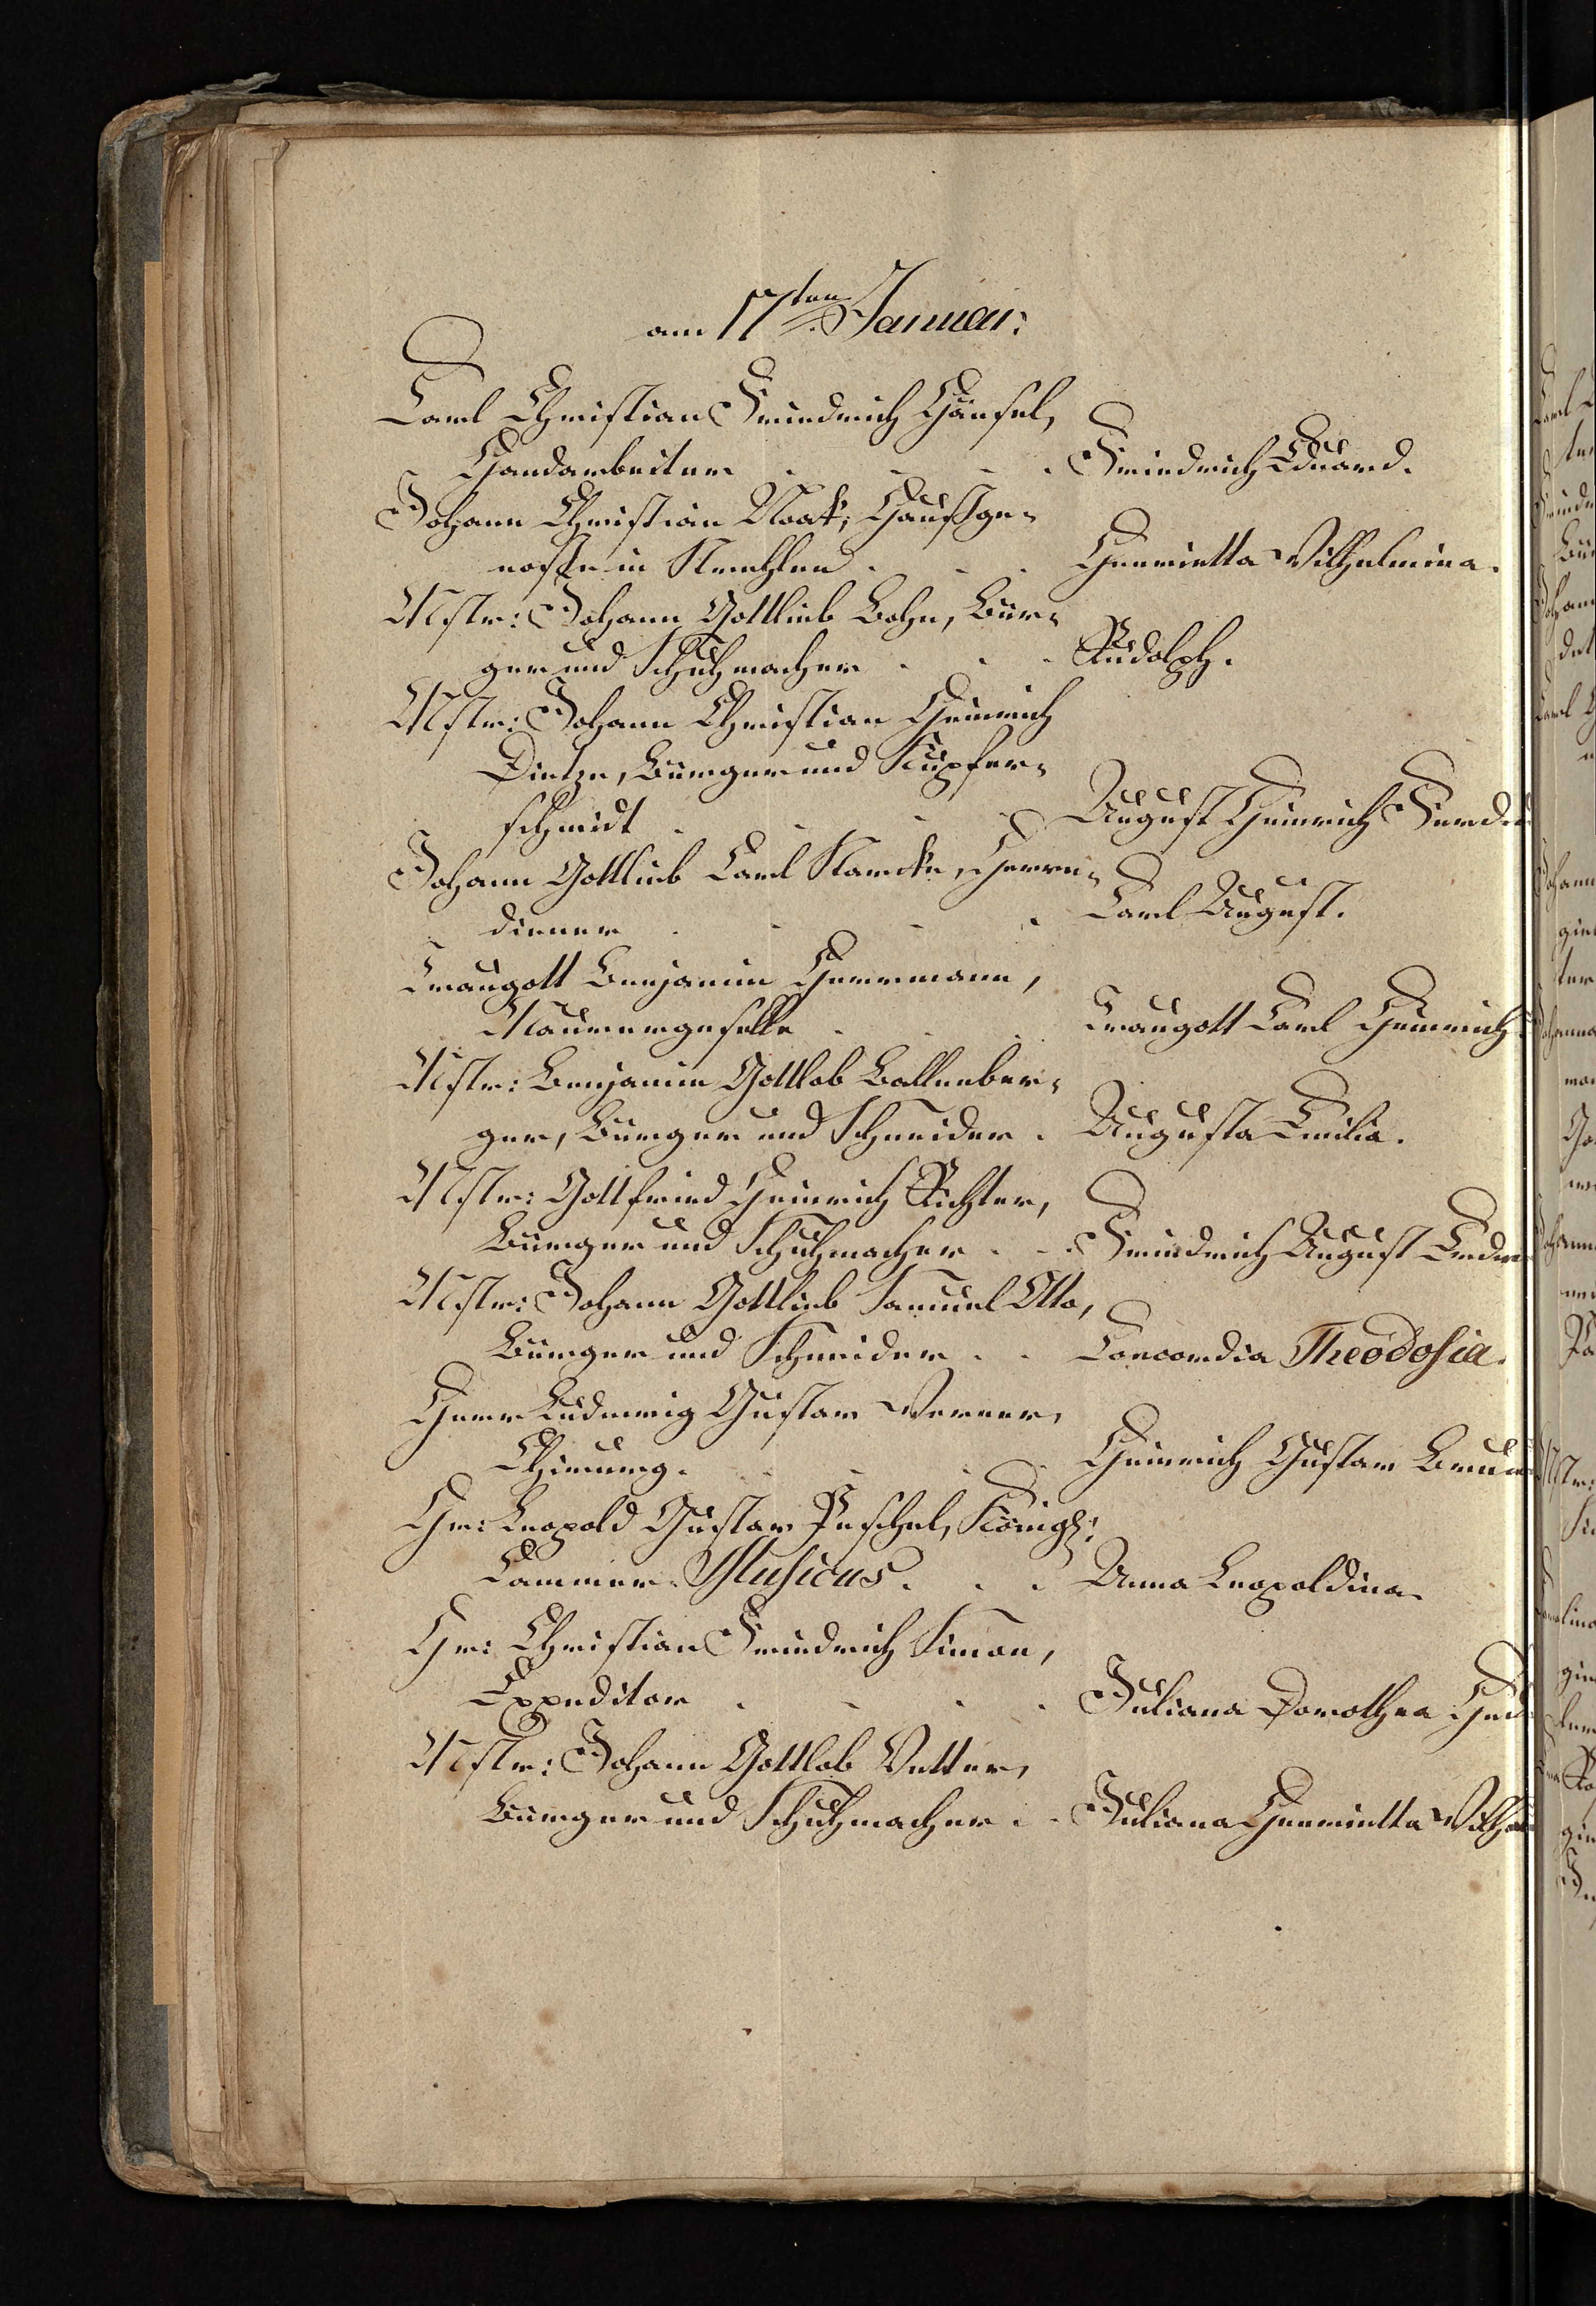 am 17ten Januar:
Carl Christian Friedrich Hänsel,
Handarbeiter . . . . Friedrich Eduard.
Johann Christian Noak, Haußge-
noße in . . . Henrietta Wilhelmina.
Mstr: Johann Gottlieb Bohn, Bür-
ger und Schuhmacher . . . Rudolph.
Mstr: Johann Christian Heinrich
Dietze, Bürger und Kupfer-
schmidt . . . . August Heinrich
Johann Gottlieb Carl Starcke, Herrn-
diener . . . . Carl August.
Traugott Benjamin Herrmann,
Maurergeselle . . . Traugott Carl Heinrich.
Mstr: Benjamin Gottlob Ballenber-
ger, Bürger und Schneider . Augusta Emilia.
Mstr: Gottfried Heinrich Richter,
Bürger und Schuhmacher . . . Friedrich August
Mstr: Johann Gottlieb Samuel Otto,
Bürger und Schneider . . Concordia Theodosia.
Herr Ludewig Gustav Werner,
Chirurg. . . . . Heinrich Gustav
Hr: Leopold Gustav Peschel, Königl:
Cammer-Musicus . . . Anna Leopoldina.
Hr: Christian Friedrich Simon,
Expeditor . . . . Juliana Dorothea
Mstr: Johann Gottlob Vetter,
Bürger und Schuhmacher . . Juliana Henrietta